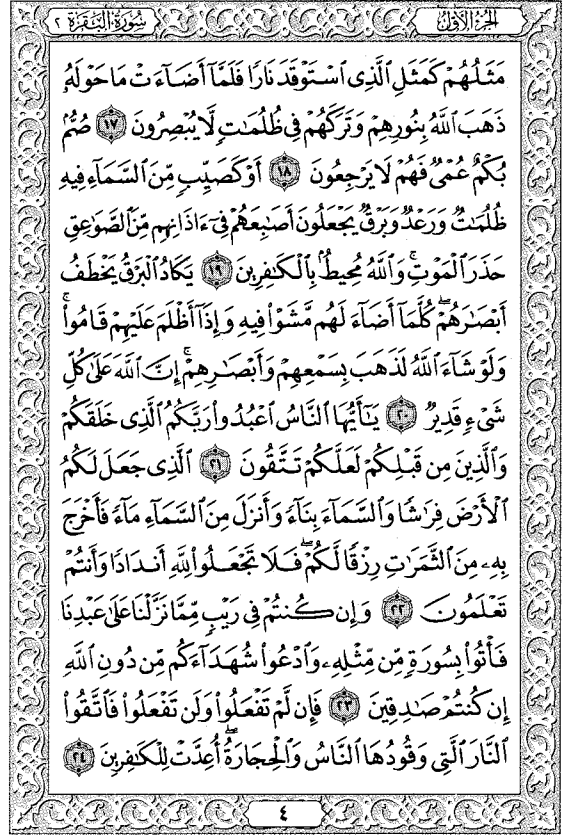 الجزء الأول
سورة البقرة ٢
مَثَلُهُمْ كَمَثَلِ ٱلَّذِى ٱسْتَوْقَدَ نَارًا فَلَمَّآ أَضَآءَتْ مَا حَوْلَهُۥ
ذَهَبَ ٱللَّهُ بِنُورِهِمْ وَتَرَكَهُمْ فِى ظُلُمَٰتٍ لَّا يُبْصِرُونَ ١٧ صُمٌّۢ
بُكْمٌ عُمْىٌ فَهُمْ لَا يَرْجِعُونَ ١٨ أَوْ كَصَيِّبٍ مِّنَ ٱلسَّمَآءِ فِيهِ
ظُلُمَٰتٌ وَرَعْدٌ وَبَرْقٌ يَجْعَلُونَ أَصَٰبِعَهُمْ فِىٓ ءَاذَانِهِم مِّنَ ٱلصَّوَٰعِقِ
حَذَرَ ٱلْمَوْتِۚ وَٱللَّهُ مُحِيطٌۢ بِٱلْكَٰفِرِينَ ١٩ يَكَادُ ٱلْبَرْقُ يَخْطَفُ
أَبْصَٰرَهُمْۖ كُلَّمَآ أَضَآءَ لَهُم مَّشَوْا۟ فِيهِ وَإِذَآ أَظْلَمَ عَلَيْهِمْ قَامُوا۟ۚ
وَلَوْ شَآءَ ٱللَّهُ لَذَهَبَ بِسَمْعِهِمْ وَأَبْصَٰرِهِمْۚ إِنَّ ٱللَّهَ عَلَىٰ كُلِّ
شَىْءٍ قَدِيرٌ ٢٠ يَٰٓأَيُّهَا ٱلنَّاسُ ٱعْبُدُوا۟ رَبَّكُمُ ٱلَّذِى خَلَقَكُمْ
وَٱلَّذِينَ مِن قَبْلِكُمْ لَعَلَّكُمْ تَتَّقُونَ ٢١ ٱلَّذِى جَعَلَ لَكُمُ
ٱلْأَرْضَ فِرَٰشًا وَٱلسَّمَآءَ بِنَآءً وَأَنزَلَ مِنَ ٱلسَّمَآءِ مَآءً فَأَخْرَجَ
بِهِۦ مِنَ ٱلثَّمَرَٰتِ رِزْقًا لَّكُمْۖ فَلَا تَجْعَلُوا۟ لِلَّهِ أَندَادًا وَأَنتُمْ
تَعْلَمُونَ ٢٢ وَإِن كُنتُمْ فِى رَيْبٍ مِّمَّا نَزَّلْنَا عَلَىٰ عَبْدِنَا
فَأْتُوا۟ بِسُورَةٍ مِّن مِّثْلِهِۦ وَٱدْعُوا۟ شُهَدَآءَكُم مِّن دُونِ ٱللَّهِ
إِن كُنتُمْ صَٰدِقِينَ ٢٣ فَإِن لَّمْ تَفْعَلُوا۟ وَلَن تَفْعَلُوا۟ فَٱتَّقُوا۟
ٱلنَّارَ ٱلَّتِى وَقُودُهَا ٱلنَّاسُ وَٱلْحِجَارَةُۖ أُعِدَّتْ لِلْكَٰفِرِينَ ٢٤
٤